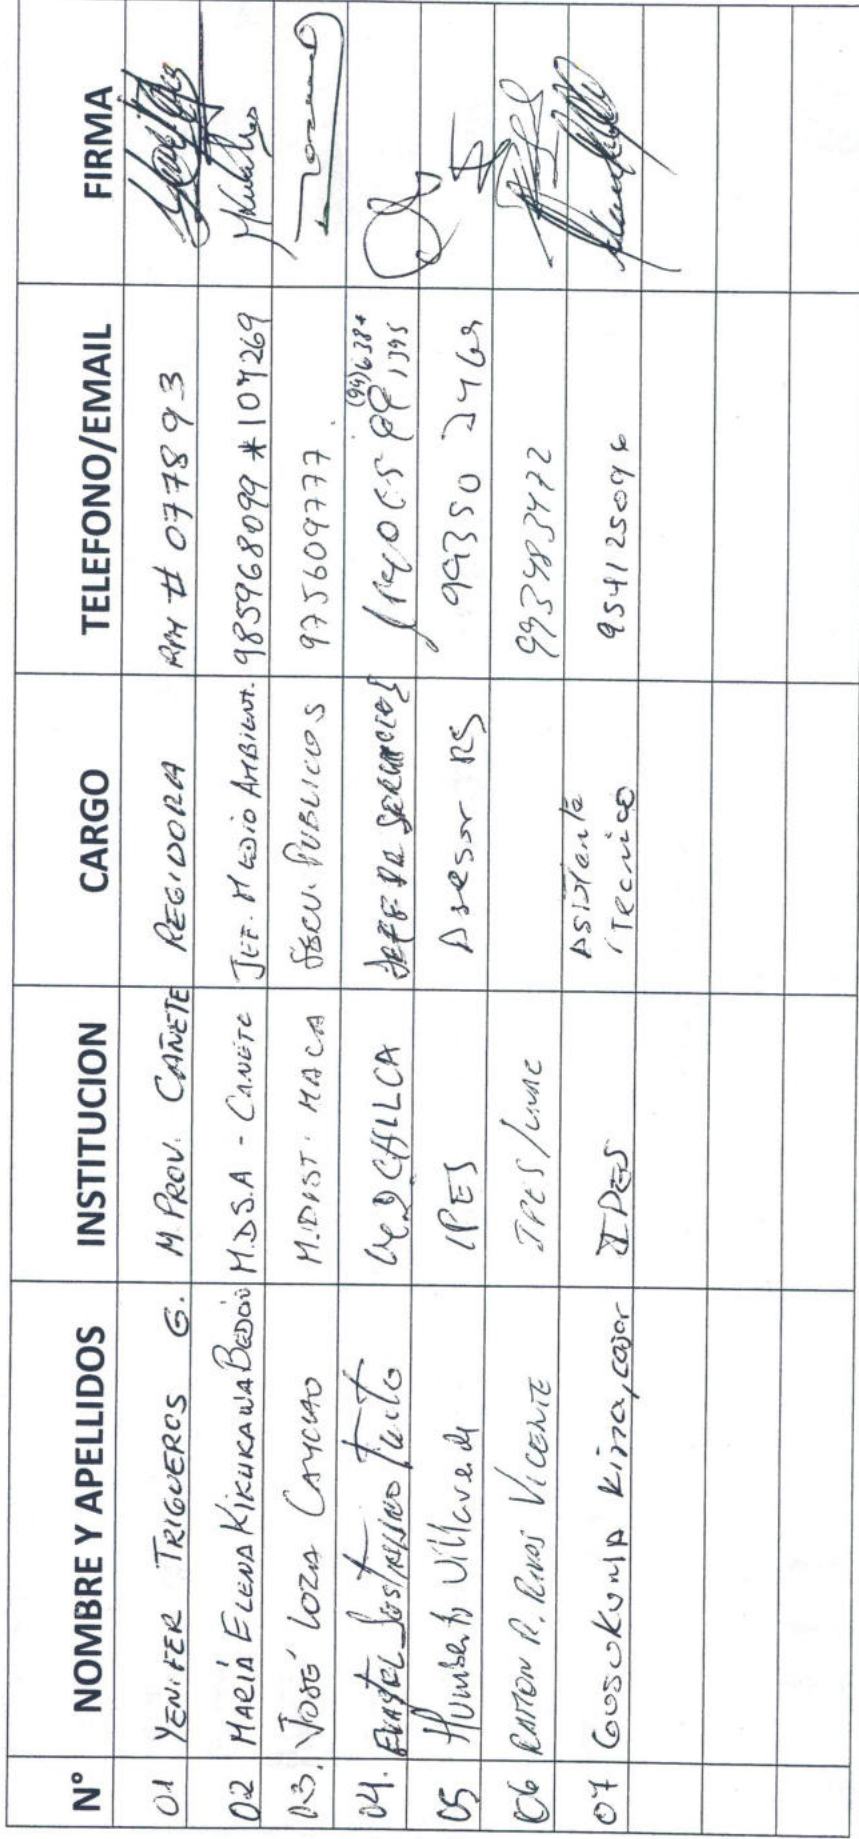 N° NOMBRE Y APELLIDOS INSTITUCION CARGO TELEFONO/EMAIL FIRMA
01 YENIFER TRIGUEROS G. M. PROV. CAÑETE REGIDORA RPM # 077893
02 MARIA ELENA KIKUKAWA M.D.S.A - CAÑETE JEF. MEDIO AMBIENT. 985968099 *107269
03. JOSÉ LOZA CAYCHO M. DIST. MALA SERV. PUBLICOS 975609777
04. CHILCA JEFE DE SERVICIOS
05 Humberto Villaverde IPES Asesor RS 99350 2469
06 RAMON R. RIVAS VICENTE IPES 993483472
07 GUSUKUMA IPES Asistente 954125096
Tecnico